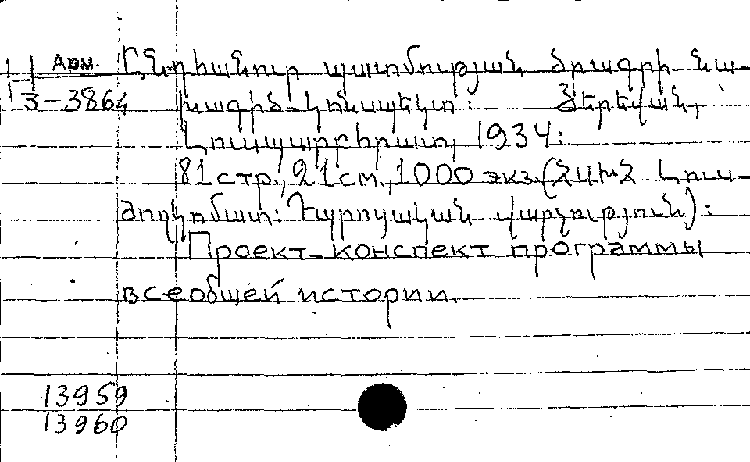 Арм. Ընդհանուր պատմության ծրագրի նա-
3-3864 խագիծ-կոնսպեկտ: Յերեվան,
Լուսպայհրատ, 1934:
81 стр., 21 см, 1000 экз. (ՀՍԽՀ Լուս-
ժողկոմատ: Դպրոցական վարչություն):
Проект-конспект программы
всеобщей истории.
13959
13960